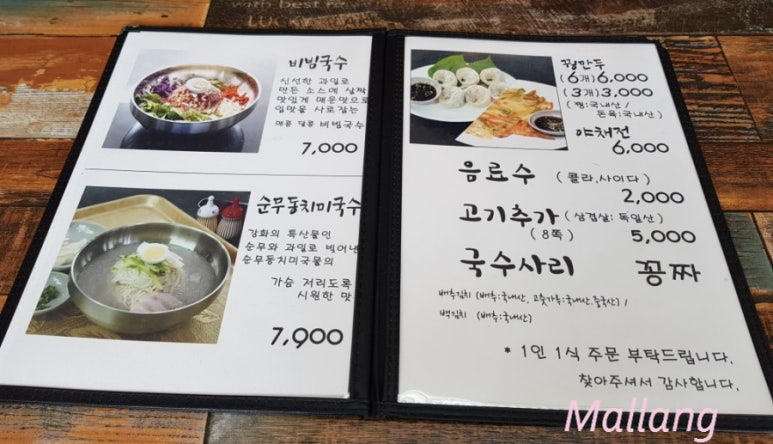 비빔국수
신선한 과일로
만든 소스에 살짝
맛있게 매운맛으로
입맛을 사로잡는
매콤 달콤 비빔국수
7,000
순무동치미국수
강화의 특산물인
순무와 과일로 빚어낸
순무동치미국물의
가슴 저리도록
시원한 맛
7,900
꿩만두
(6개)6,000
(3개)3,000
(꿩:국내산/
돈육:국내산)
야채전
6,000
음료수 (콜라,사이다)
2,000
고기추가 (삼겹살: 독일산)
(8쪽) 5,000
국수사리 꽁짜
배추김치 (배추:국내산, 고춧가루:국내산.중국산) /
백김치 (배추:국내산)
* 1인 1식 주문 부탁드립니다.
찾아주셔서 감사합니다.
Mallang